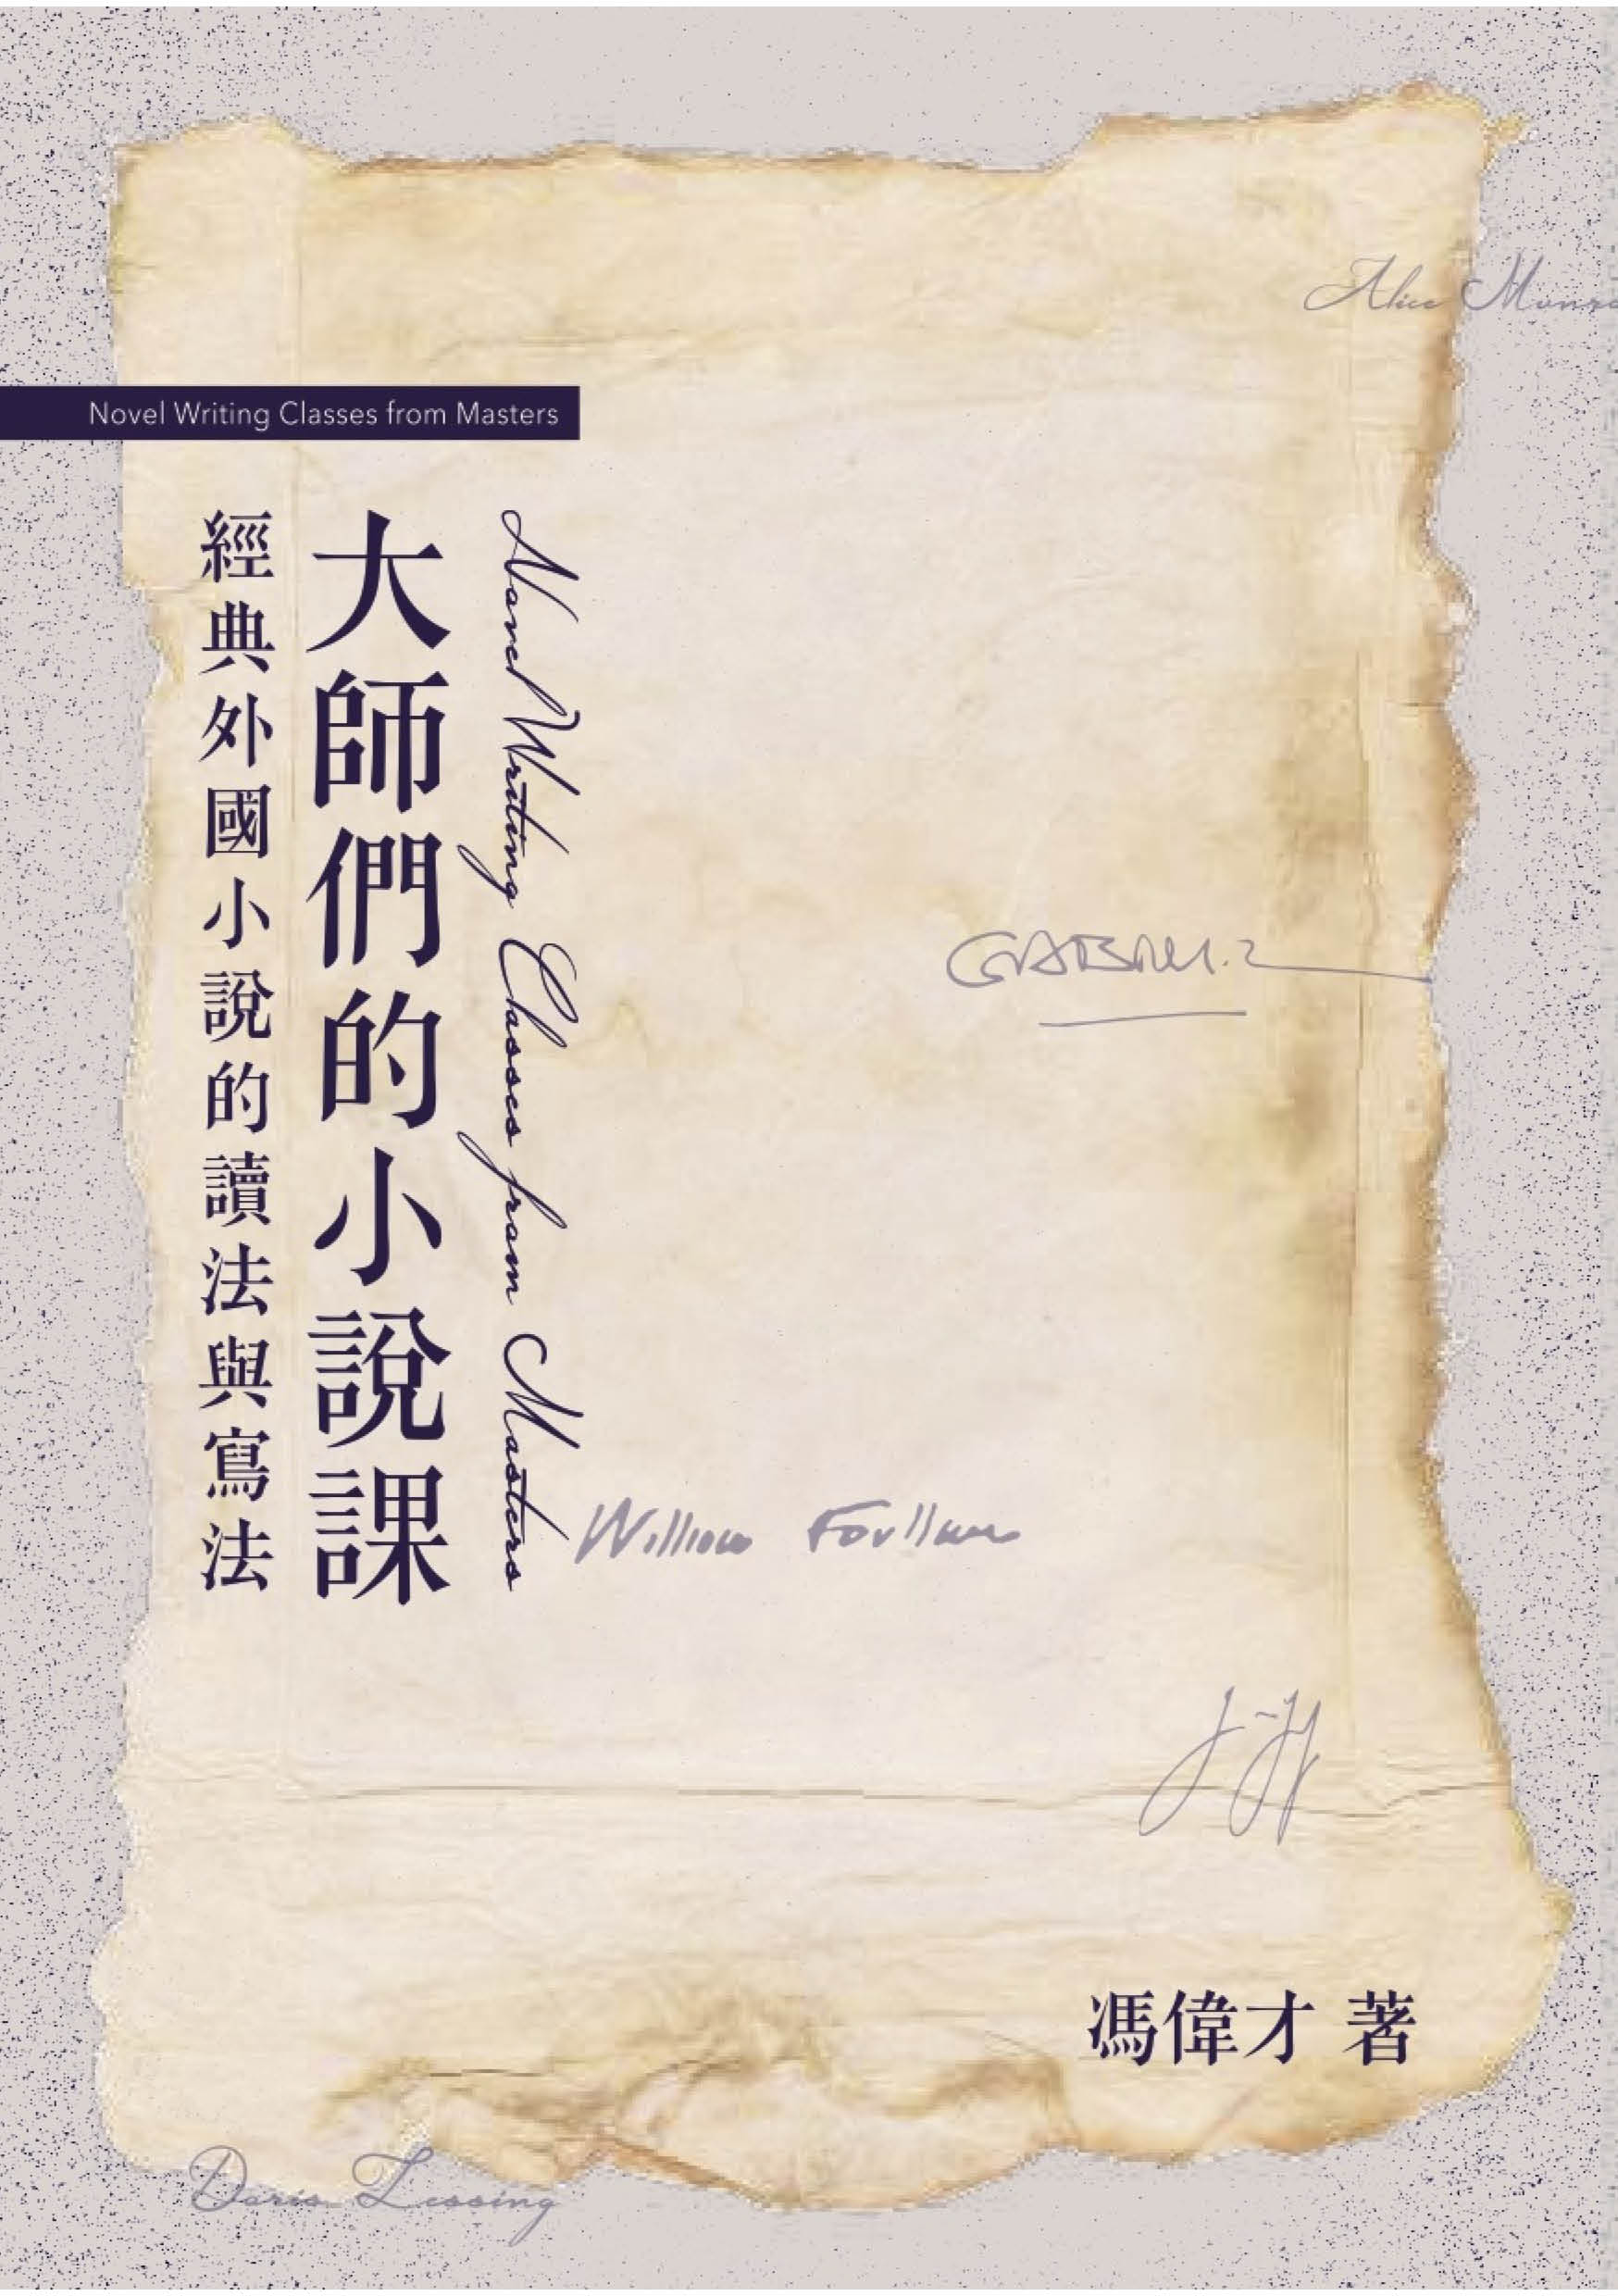 Alice Munro
Novel Writing Classes from Masters
Novel Writing Classes from Masters
大師們的小說課
經典外國小說的讀法與寫法
William Faulkner
馮偉才 著
Doris Lessing